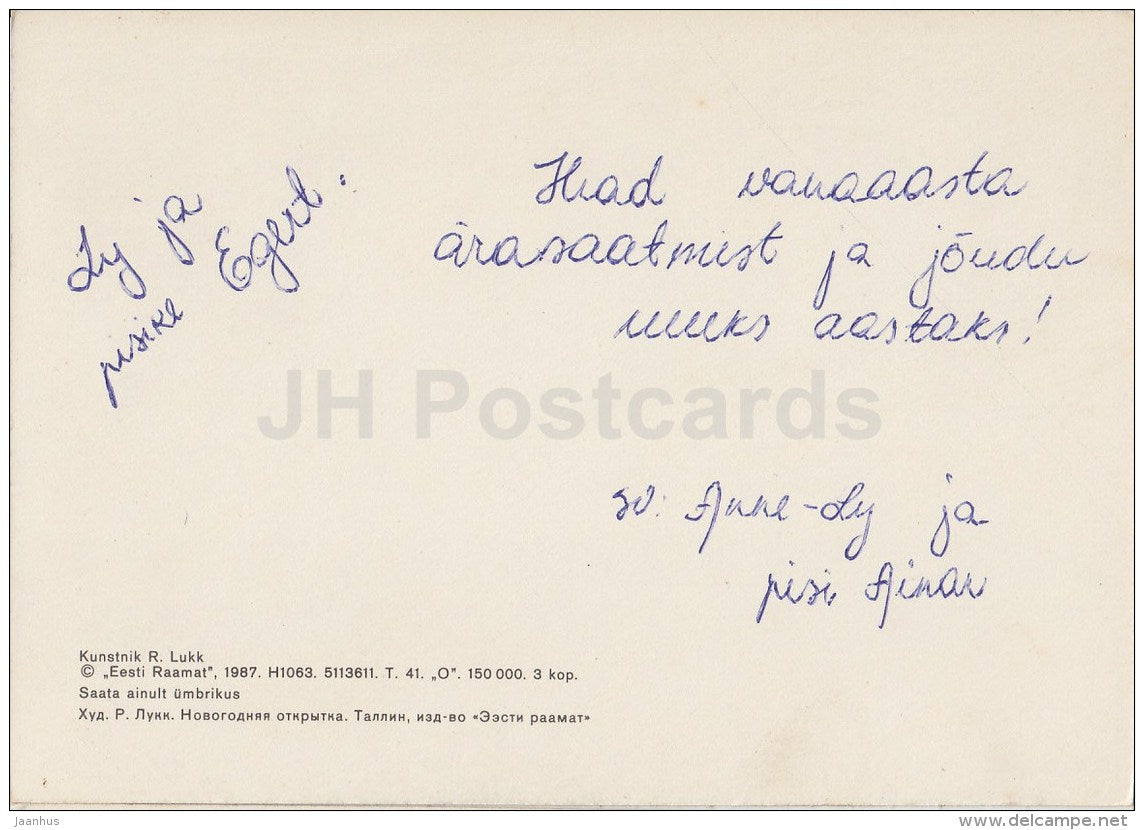 Ly ja
pisike Egert.
Head vanaaasta
ärasaatmist ja jõudu
uueks aastaks!
JH Postcards
sv: Anne-Ly ja
pisi Ainar
Kunstnik R. Lukk
© „Eesti Raamat", 1987. H1063. 5113611. T. 41. „O". 150 000. 3 kop.
Saata ainult ümbrikus
Худ. Р. Лукк. Новогодняя открытка. Таллин, изд-во «Ээсти раамат»
Jaanhus
www.delcampe.net